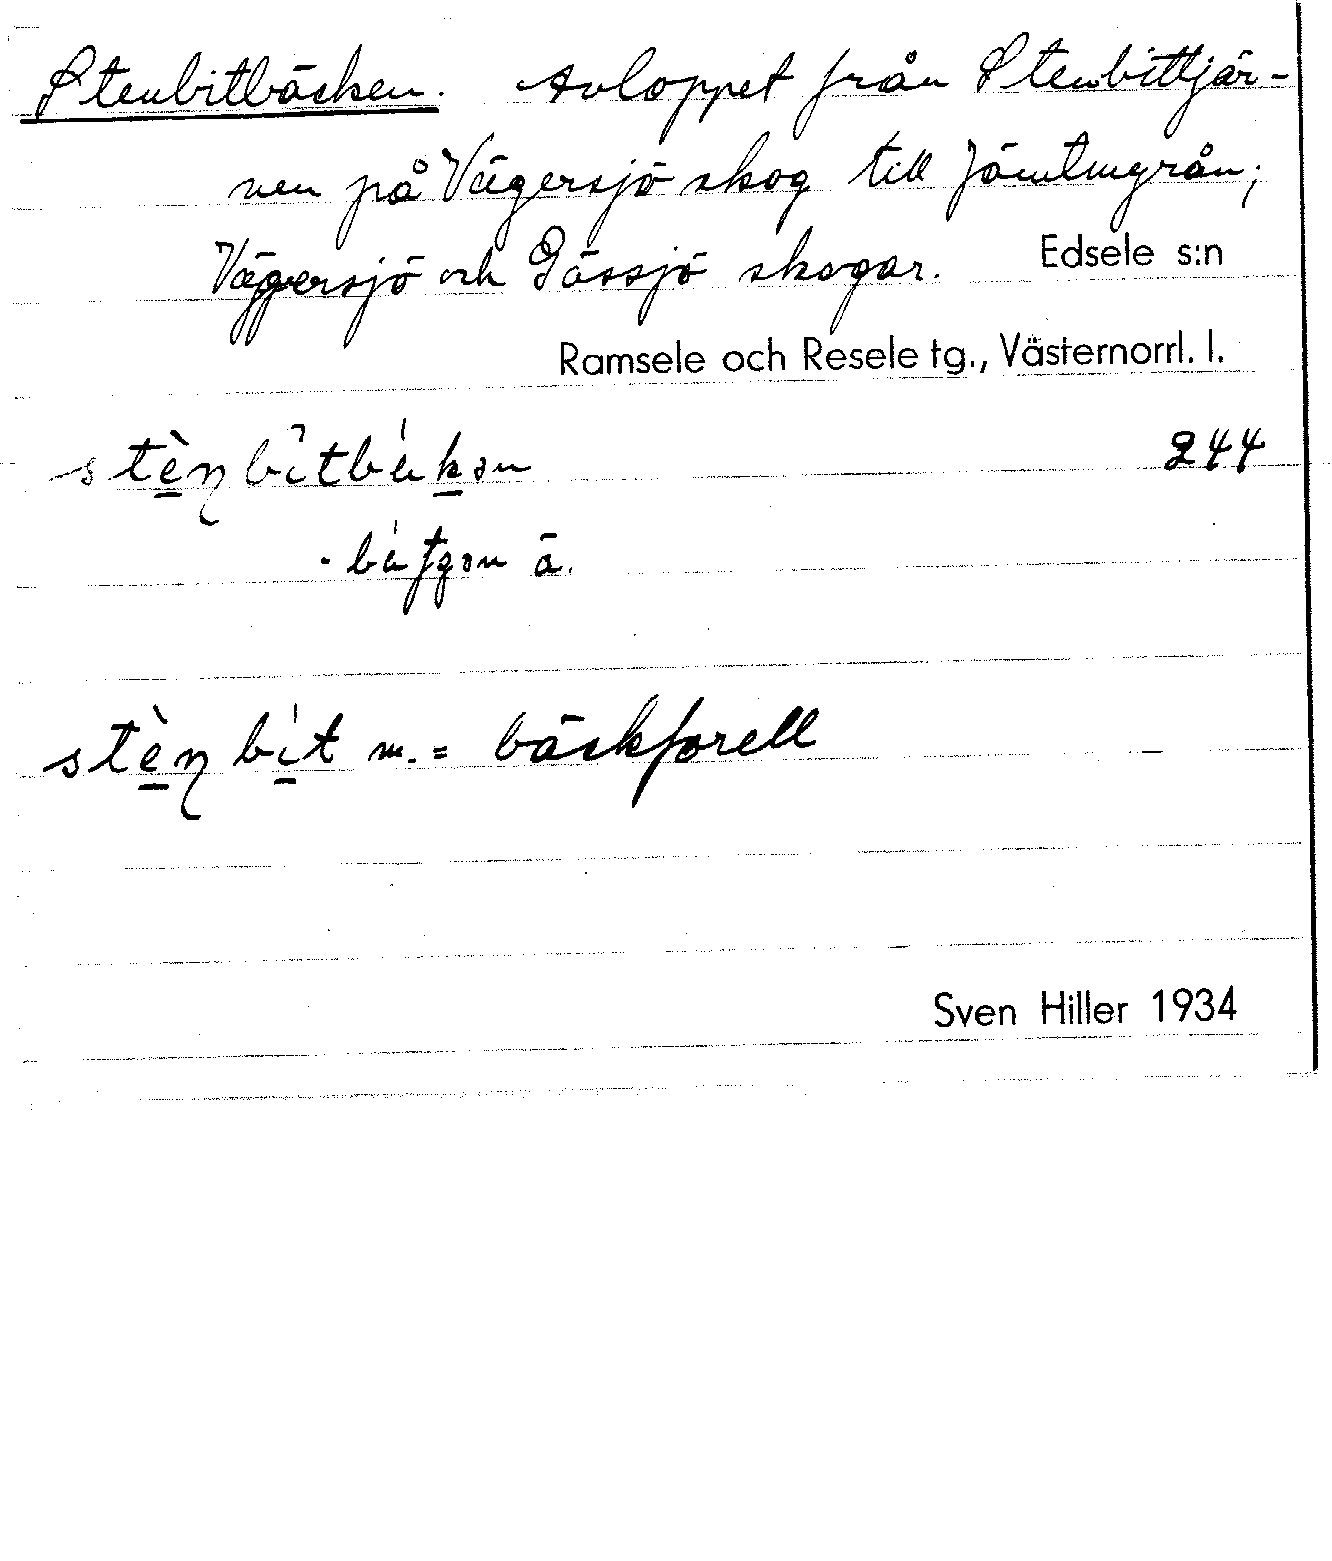 Stenbitbäcken. Avloppet från Stenbittjär-
nen på Vägersjö skog till Jämtmyrån;
Vägersjö och Gässjö skogar. Edsele s:n
Ramsele och Resele tg., Västernorrl. l.
244
ä.
m. = bäckforell
Sven Hiller 1934